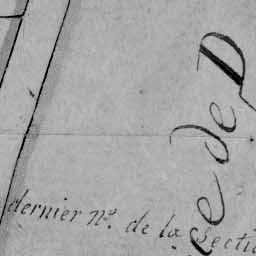 dernier nº. de la Secti
e de D